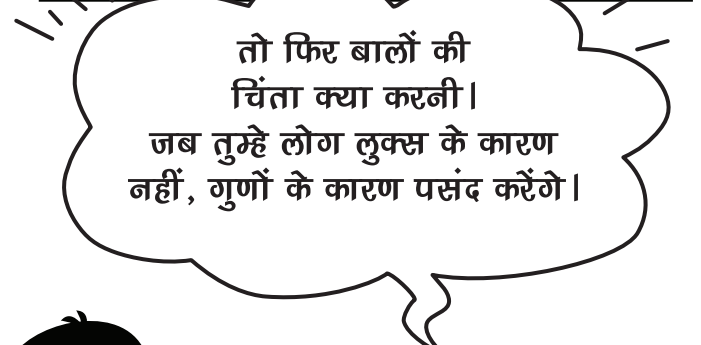 तो फिर बालों की
चिंता क्या करनी।
जब तुम्हे लोग लुक्स के कारण
नहीं, गुणों के कारण पसंद करेंगे।